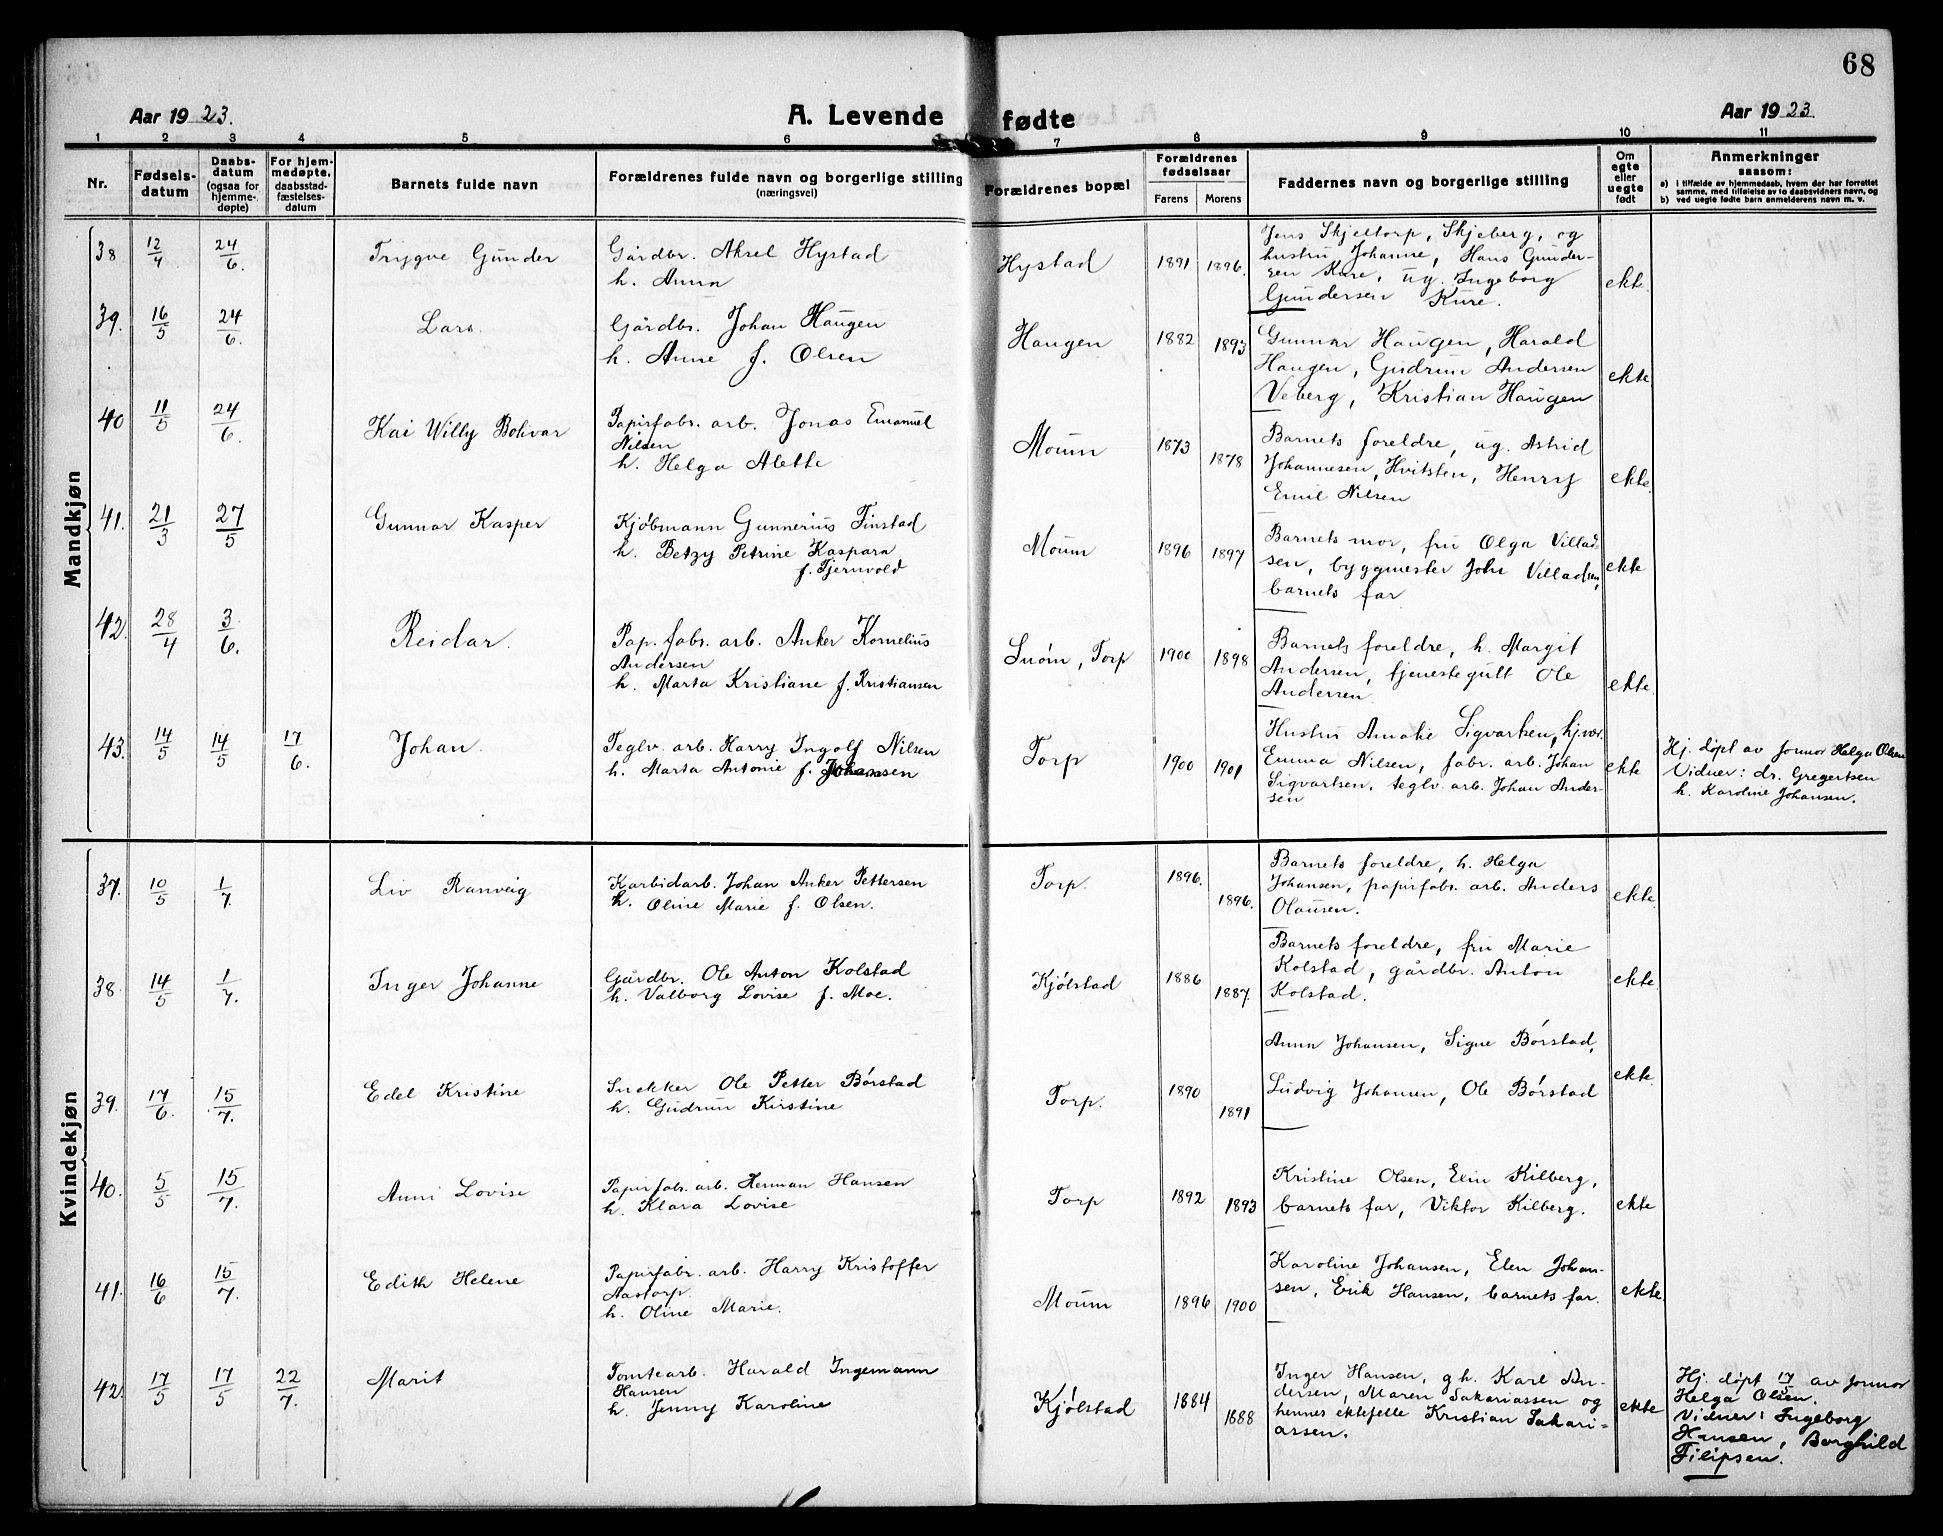 68
Aar 1923.
A. Levende fødte
Aar 1923.
1 2 3 4 5 6 7 8 9 10 11
Nr.
Fødsels-
datum
Daabs-
datum
(ogsaa for
hjemme-
døpte)
For hjem-
medøpte,
daabsstad-
fæstelses-
datum
Barnets fulde navn
Forældrenes fulde navn og borgerlige stilling
(næringsvei)
Forældrenes bopæl
Forældrenes
fødselsaar
Farens Morens
Faddernes navn og borgerlige stilling
Om
egte
eller
uegte
født
Anmerkninger
saasom:
a) i tilfælde av hjemmedaab, hvem der har forrettet
samme, med tilføielse av to daabsvidners navn, og
b) ved uegte fødte barn anmelderens navn m. v.
Mandkjøn
38 12/4 24/6. Trygve Gunder
Gårdbr. Aksel Hystad
h. Anna
Hystad 1891 1896.
Jens Skjeltorp, Skjeberg, og
hustru Johanne, Hans Gunder-
sen Kure, ug. Ingeborg
Gundersen Kure.
ekte
39. 16/5 24/6. Lars.
Gårdbr. Johan Haugen
h. Anne f. Olsen
Haugen 1882 1893
Gunnar Haugen, Harald
Haugen, Gudrun Andersen
Veberg, Kristian Haugen
ekte
40 11/5 24/6. Kai Willy Bolivar
Papirfabr. arb. Jonas Emanuel
Nilsen
h. Helga Alette
Moum 1873 1878
Barnets foreldre, ug. Astrid
Johannesen, Hvitsten, Henry
Emil Nilsen
ekte.
41. 21/3 27/5 Gunnar Kasper
Kjøbmann Gunnerius Finstad
h. Betzy Petrine Kaspara
f. Tjernvold
Moum 1896 1897
Barnets mor, fru Olga Villad-
sen, byggmester John Villadsen,
barnets far
ekte
42. 28/4 3/6. Reidar.
Pap. fabr. arb. Anker Kornelius
Andersen
h. Marta Kristiane f. Kristiansen
Torp 1900 1898
Barnets foreldre, h. Margit
Andersen, tjenestegutt Ole
Andersen
ekte.
43. 14/5 14/5 17/6. Johan.
Teglv. arb. Harry Ingolf Nilsen
h. Marta Antonie f. Johansen
Torp 1900 1901
Hustru Amalie Sigvartsen, hj.vær.
Emma Nilsen, fabr. arb. Johan
Sigvartsen, teglv. arb. Johan Ander-
sen
ekte
Hj. døpt av jormor Helga Olsen
Vidner: dr. Gregertsen
h. Karoline Johansen.
Kvindekjøn
37. 10/5 1/7. Liv Ranveig
Karbidarb. Johan Anker Pettersen
h. Oline Marie f. Olsen.
Torp. 1896. 1896.
Barnets foreldre, h. Helga
Johansen, papirfabr. arb. Anders
Olausen.
ekte.
38. 14/5 1/7. Inger Johanne
Gårdbr. Ole Anton Kolstad
h. Valborg Lovise f. Moe.
Kjølstad 1886 1887.
Barnets foreldre, fru Marie
Kolstad, gårdbr. Anton
Kolstad.
ekte.
39. 17/6. 15/7. Edel Kristine
Snekker Ole Petter Børstad
h. Gudrun Kirstine
Torp. 1890 1891
Anna Johansen, Signe Børstad,
Ludvig Johansen, Ole Børstad
ekte.
40. 5/5 15/7. Anni Lovise
Papirfabr. arb. Herman Hansen
h. Klara Lovise
Torp 1892 1893
Kristine Olsen, Elin Kilberg,
barnets far, Viktor Kilberg.
ekte
41. 16/6 15/7. Edith Helene
Papirfabr. arb. Harry Kristoffer
Aastorp.
h. Oline Marie.
Moum 1896 1900
Karoline Johansen, Elen Johan-
sen, Erik Hansen, barnets far.
ekte.
42. 17/5 17/5 22/7. Marit
Tomtearb. Harald Ingemann
Hansen
h. Jenny Karoline
Kjølstad 1884 1888
Inger Hansen, gh. Karl An-
dersen, Maren Sakariassen og
hennes ektefelle Kristian Sakari-
assen.
ekte
Hj. døpt 17/5 av jormor
Helga Olsen.
Vidner: Ingeborg
Hansen, Borghild
Filipsen.